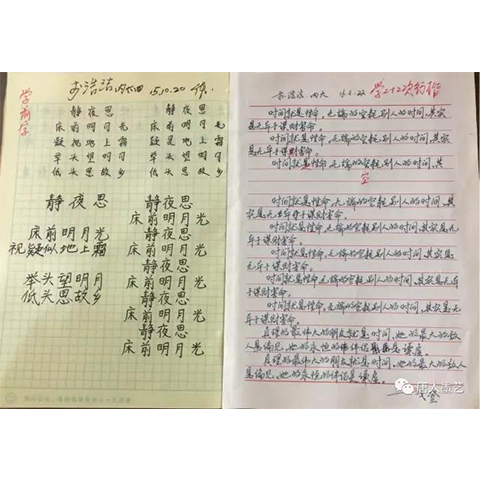 学前字
15.10.20
静夜思
床前明月光
疑是地上霜
举头望明月
低头思故乡
静夜思
床前明月光
疑是地上霜
举头望明月
低头思故乡
静夜思
床前明月光
视疑似地上霜
举头望明月
低头思故乡
静夜思
床前明月光
静夜思
床前明月光
静夜思
床前明月光
静夜思
床前明月光
静夜思
床前明月光
时间就是性命,无端的空耗别人的时间,其实
是无异于谋财害命。
时间就是性命,无端的空耗别人的时间,其实
是无异于谋财害命。
时间就是性命,无端的空耗别人的时间,其
实
时间就是性命,无端的空耗别人的时间,其实
是无异于谋财害命。
时间就是性命,无端的空耗别人的时间,其实是
无异于谋财害命。
时间就是性命,无端的空耗别人的时间,其实是无
异于谋财害命。
时间就是性命,无端的空耗别人的时间,其实是无
异于谋财害命。
真理的最伟大的朋友就是时间,她的最大的敌
人是偏见,她的永恒的伴侣是谦虚。
真理的最伟大的朋友就是时间,她的最大的敌人
是偏见,她的永恒的伴侣是谦虚。
唐人流艺